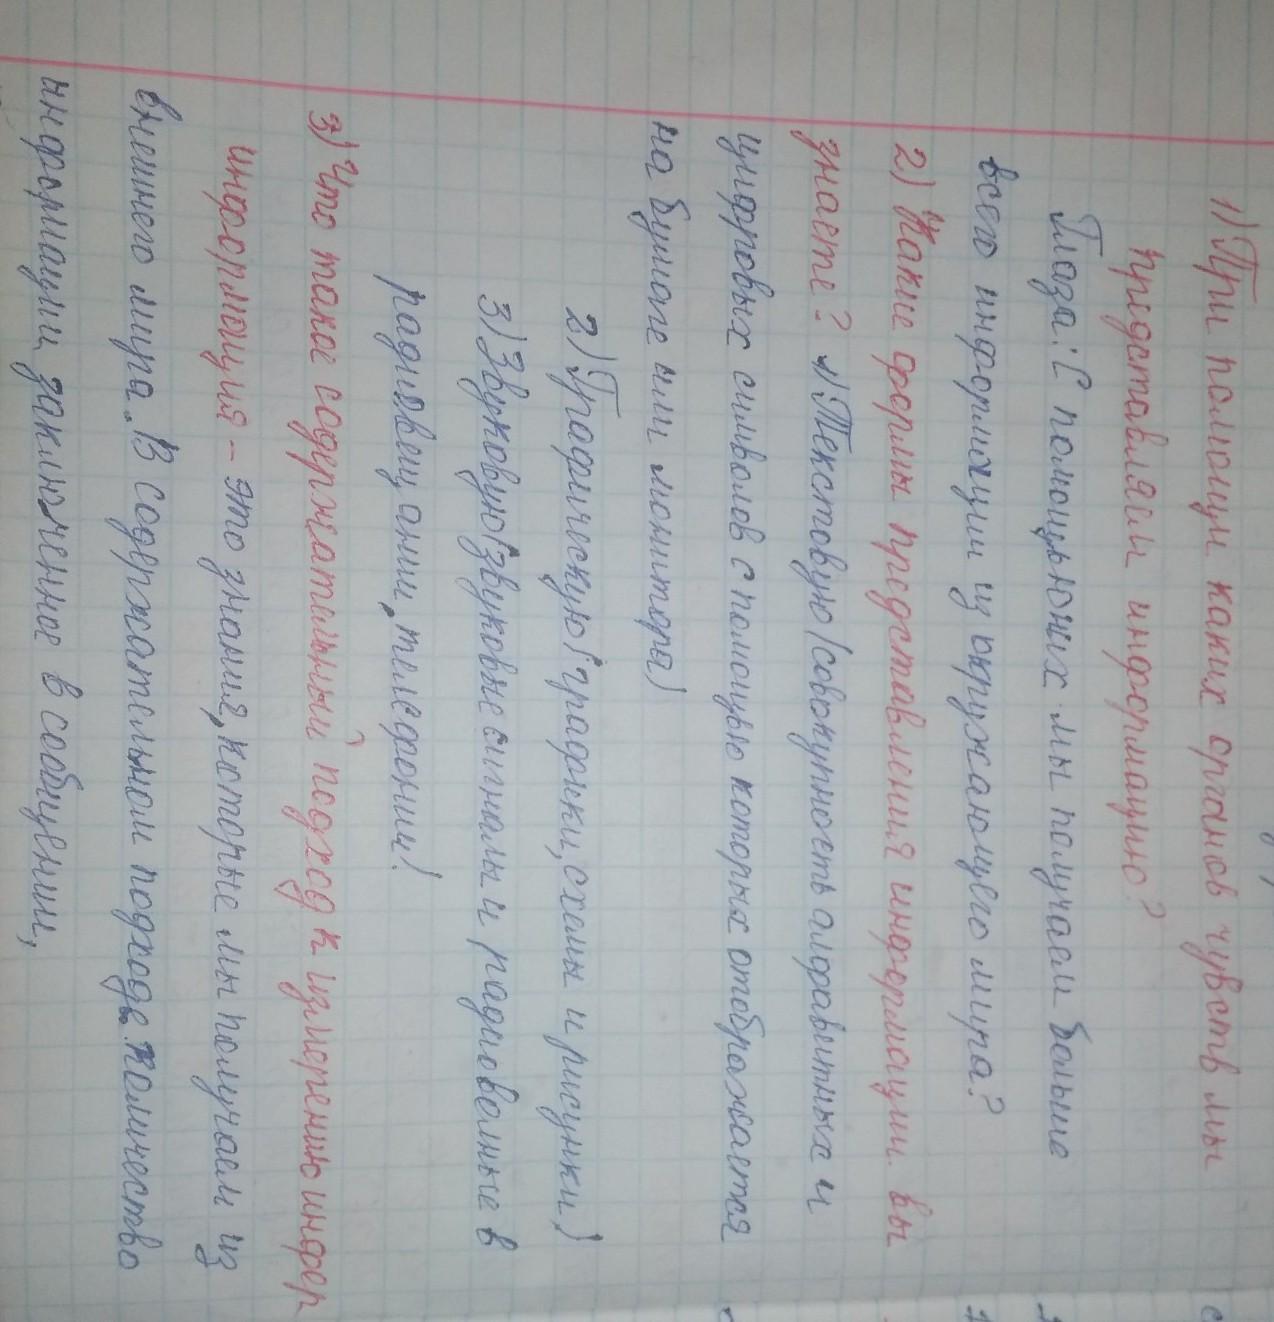 1) При помощи каких органов чувств мы
представляем информацию?
Глаза! С помощью них мы получаем больше
всего информации из окружающего мира?
2) Какие формы представления информации вы
знаете? 1) Текстовую (совокупность алфавитных и
цифровых символов с помощью которых отображается
на бумаге или монитора)
2) Графическую (графики, схемы и рисунки)
3) Звуковую (звуковые сигналы и радиоволные в
радиовещании, телефонии)
3) Что такое содержательный подход к измерению инфор
информация - это знания, которые мы получаем из
внешнего мира. В содержательном подходе количество
информации, заключенное в сообщении,